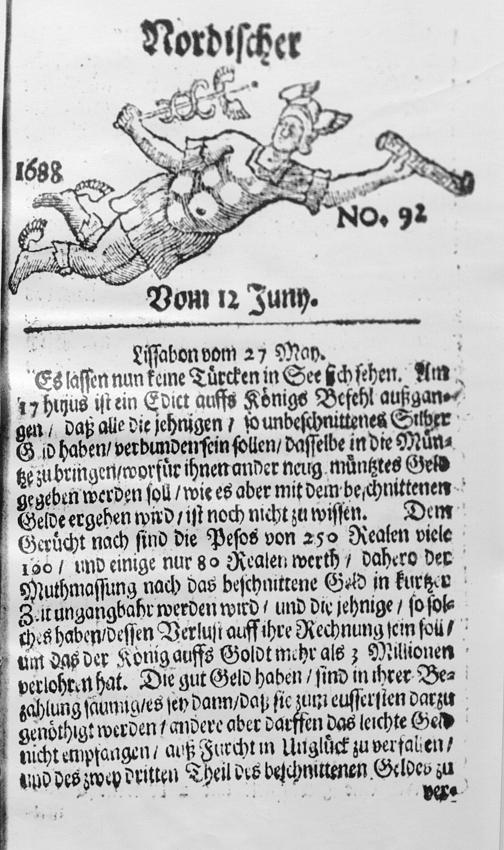 Nordischer
1688
NO. 92
Vom 12 Juny.
Lissabon vom 27 May.
Es lassen nun keine Türcken in See sich sehen. Am
17 hujus ist ein Edict auffs Königs Befehl außgan-
gen / daß alle die jehnigen / so unbeschnittenes Silber
G ld haben / verbunden sein sollen / dasselbe in die Mün-
tze zu bringen / worfür ihnen ander neug müntztes Geld
gegeben werden soll / wie es aber mit dem beschnittenen
Gelde ergehen wird / ist noch nicht zu wissen. Dem
Gerücht nach sind die Pesos von 250 Realen viele
100 / und einige nur 80 Realen werth / dahero der
Muthmassung nach das beschnittene Geld in kurtzer
Zeit ungangbahr werden wird / und die jehnige / so sol-
ches haben / dessen Verlust auff ihre Rechnung sein soll /
um das der König auffs Goldt mehr als 3 Millionen
verlohren hat. Die gut Geld haben / sind in ihrer Be-
zahlung säumig / es sey dann / daß sie zum eussersten darzu
genöthigt werden / andere aber darffen das leichte Geld
nicht empfangen / auß Furcht in Unglück zu verfallen /
und des zwey dritten Theil des beschnittenen Geldes zu
ver-